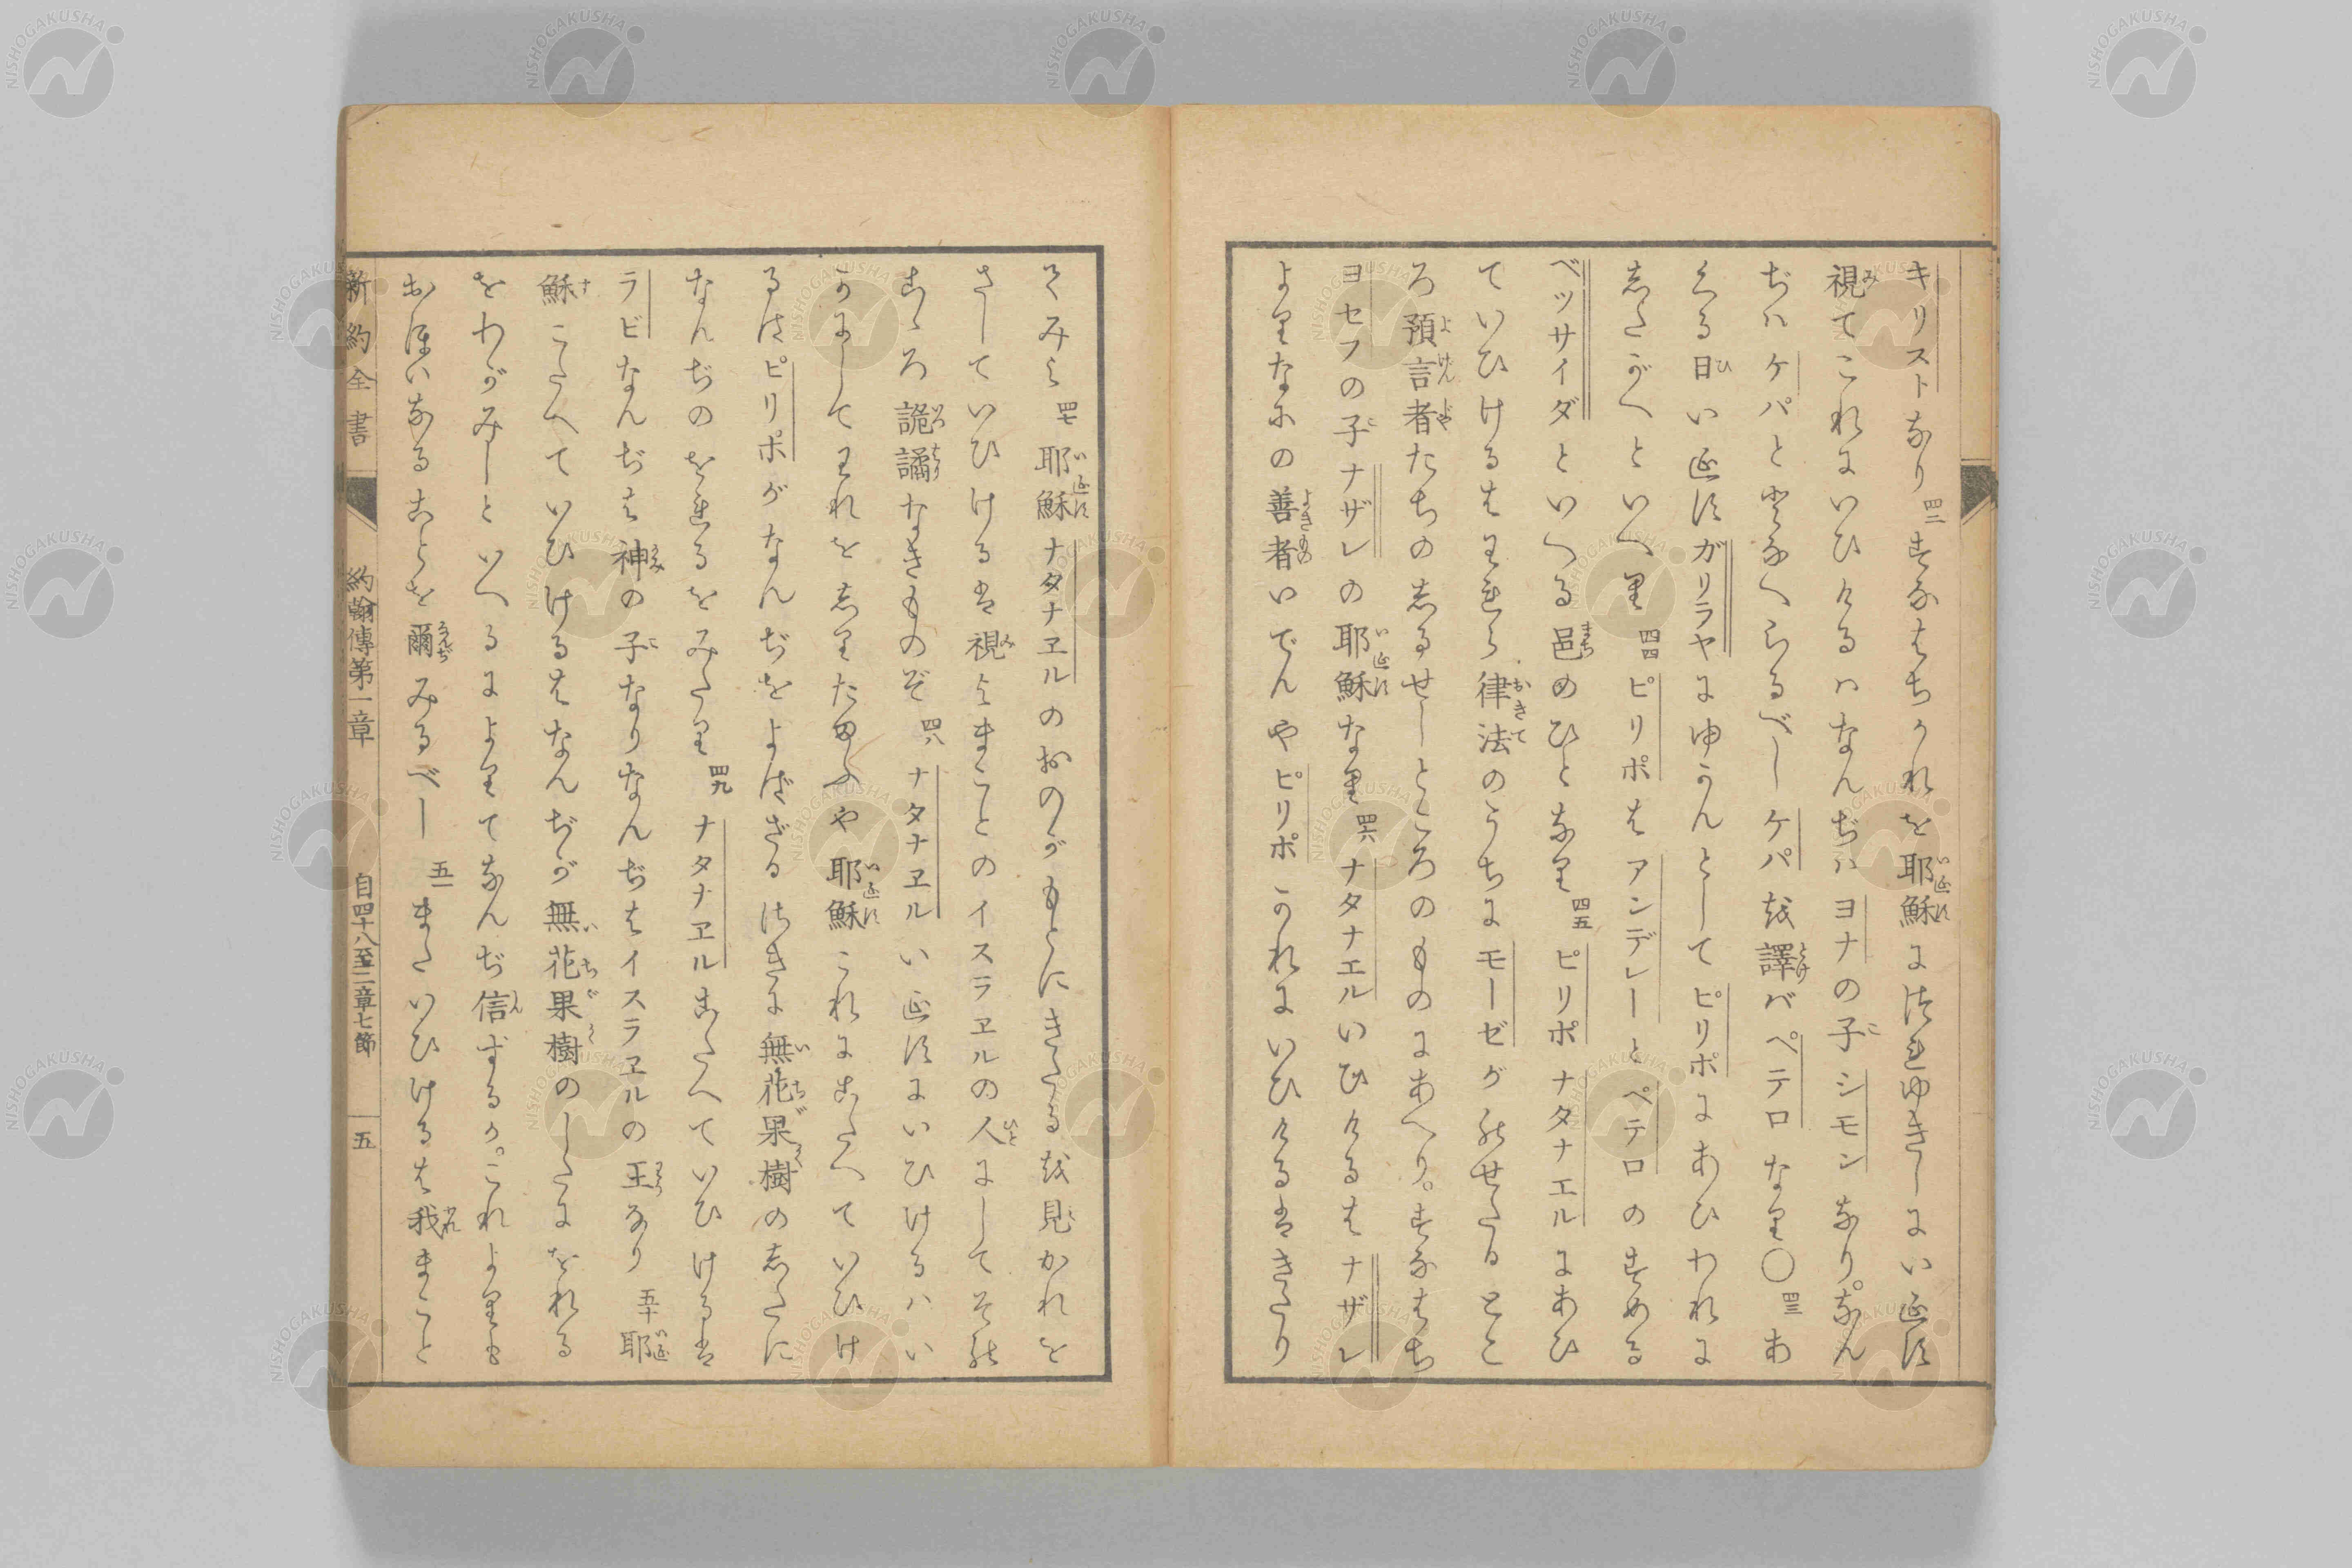 キリストなり 四二 すなはちかれを耶穌につれゆきしにい𛀁す
視てこれにいひけるハなんぢハヨナの子シモンなり。なん
ぢハケパととなへらるべしケパを譯バペテロなり〇 四三 あ
くる日い𛀁すガリラヤにゆかんとしてピリポにあひわれに
したがへといへり 四四 ピリポはアンデレーとペテロのすめる
ベツサイダといへる邑のひとなり 四五 ピリポナタナエルにあひ
ていひけるはわれら律法のうちにモーゼがのせたるとこ
ろ預言者たちのしるせしところのものにあへり。すなはち
ヨセフの子ナザレの耶穌なり 四六 ナタナエルいひけるはナザレ
よりなにの善者いでんやピリポかれにいひけるはきたり
てみよ 四七 耶穌ナタナヱルのおのがもとにきたるを見かれを
さしていひけるは視よまことのイスラヱルの人にしてその
こゝろ詭譎なきものぞ 四八 ナタナヱルい𛀁すにいひけるハい
かにしてわれをしりたまふや耶穌これにこたへていひけ
るはピリポがなんぢをよばざるさきに無花果樹のしたに
なんぢのをれるをみたり 四九 ナタナヱルこたへていひけるは
ラビなんぢは神の子なりなんぢはイスラヱルの王なり 五十 耶
穌こたへていひけるはなんぢが無花果樹のしたにをれる
をわがみしといへるによりてなんぢ信ずるか。これよりも
おほいなることを爾みるべし 五一 またいひけるは我まこと
新約全書 約翰傳第一章 自四十八至二章七節 五